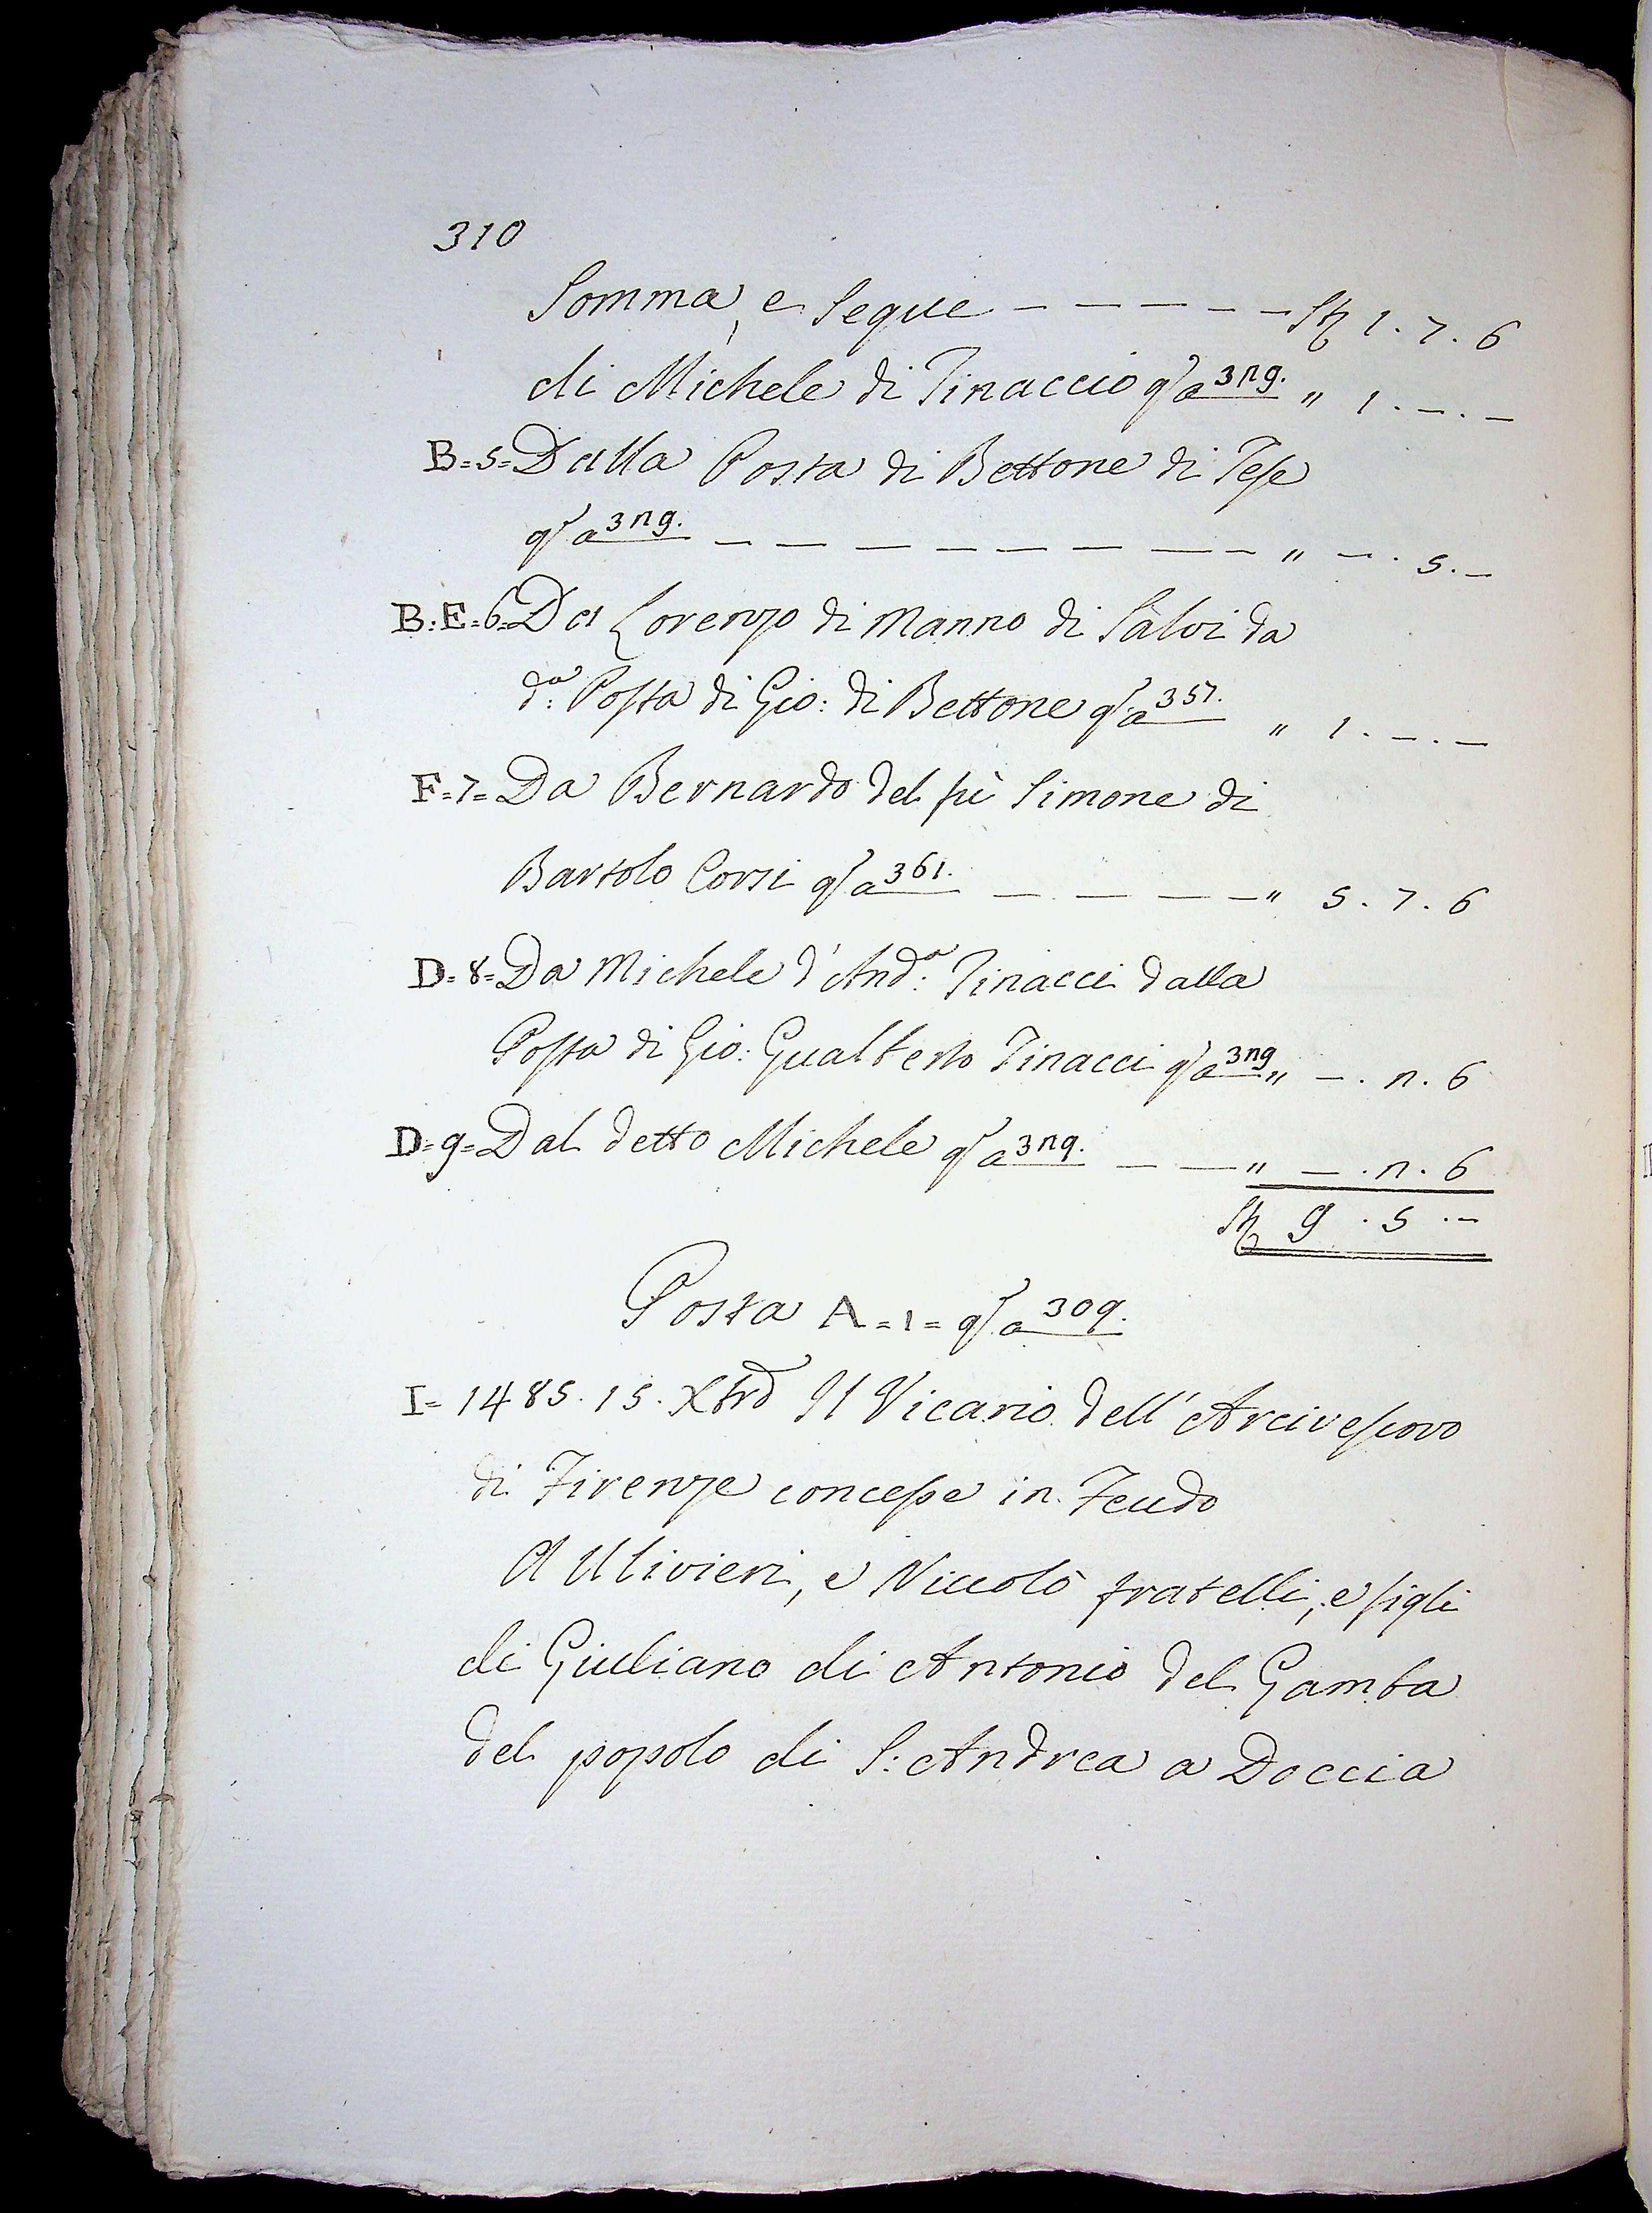 310
Somma, e Segue - - - - - St 1. 7. 6
di Michele di Tinaccio q/a 329. " 1. -. -
B=5= Dalla Posta di Bettone di Tese
q/a 329. - - - - - - - - " -. 5. -
B:E=6= Da Lorenzo di Manno di Salvi da
d.ª Posta di Gio: di Bettone q/a 357. " 1. -. -
F=7= Da Bernardo del fù Simone di
Bartolo Corsi q/a 361. - - - - " 5. 7. 6
D=8= Da Michele d'And.ª Tinacci dalla
Posta di Gio: Gualberto Tinacci q/a 329 " -. 2. 6
D=9= Dal detto Michele q/a 329. - - " -. 2. 6
St 9. 5. -
Posta A=1= q/a 309.
I= 1485. 15. Xbre Il Vicario dell'Arcivescovo
di Firenze concesse in Feudo
A Ulivieri, e Niccolò fratelli, e figli
di Giuliano di Antonio del Gamba
del popolo di S: Andrea a Doccia